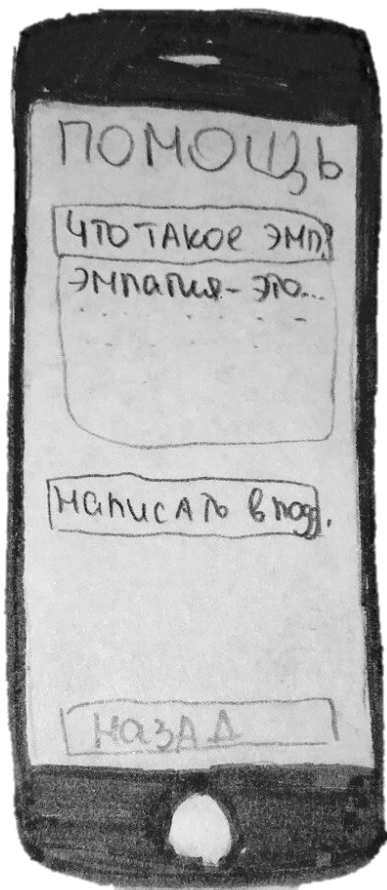 ПОМОЩЬ
ЧТО ТАКОЕ ЭМП.?
ЭМПАТИЯ - ЭТО...
НАПИСАТЬ В ПОДД.
НАЗАД